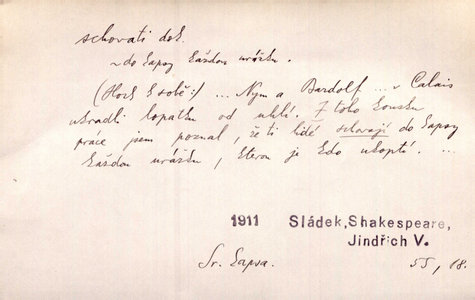 schovati dok.
~ do kapsy každou urážku.
(Hoch k sobě:) ... Nym a Bardolf ... v Calais
ukradli lopatku od uhlí. Z toho kousku
práce jsem poznal, že ti lidé schovají do kapsy
každou urážku, kterou je kdo uhoští. ...
1911 Sládek, Shakespeare,
Jindřich V.
Sr. kapsa. 55, 18.